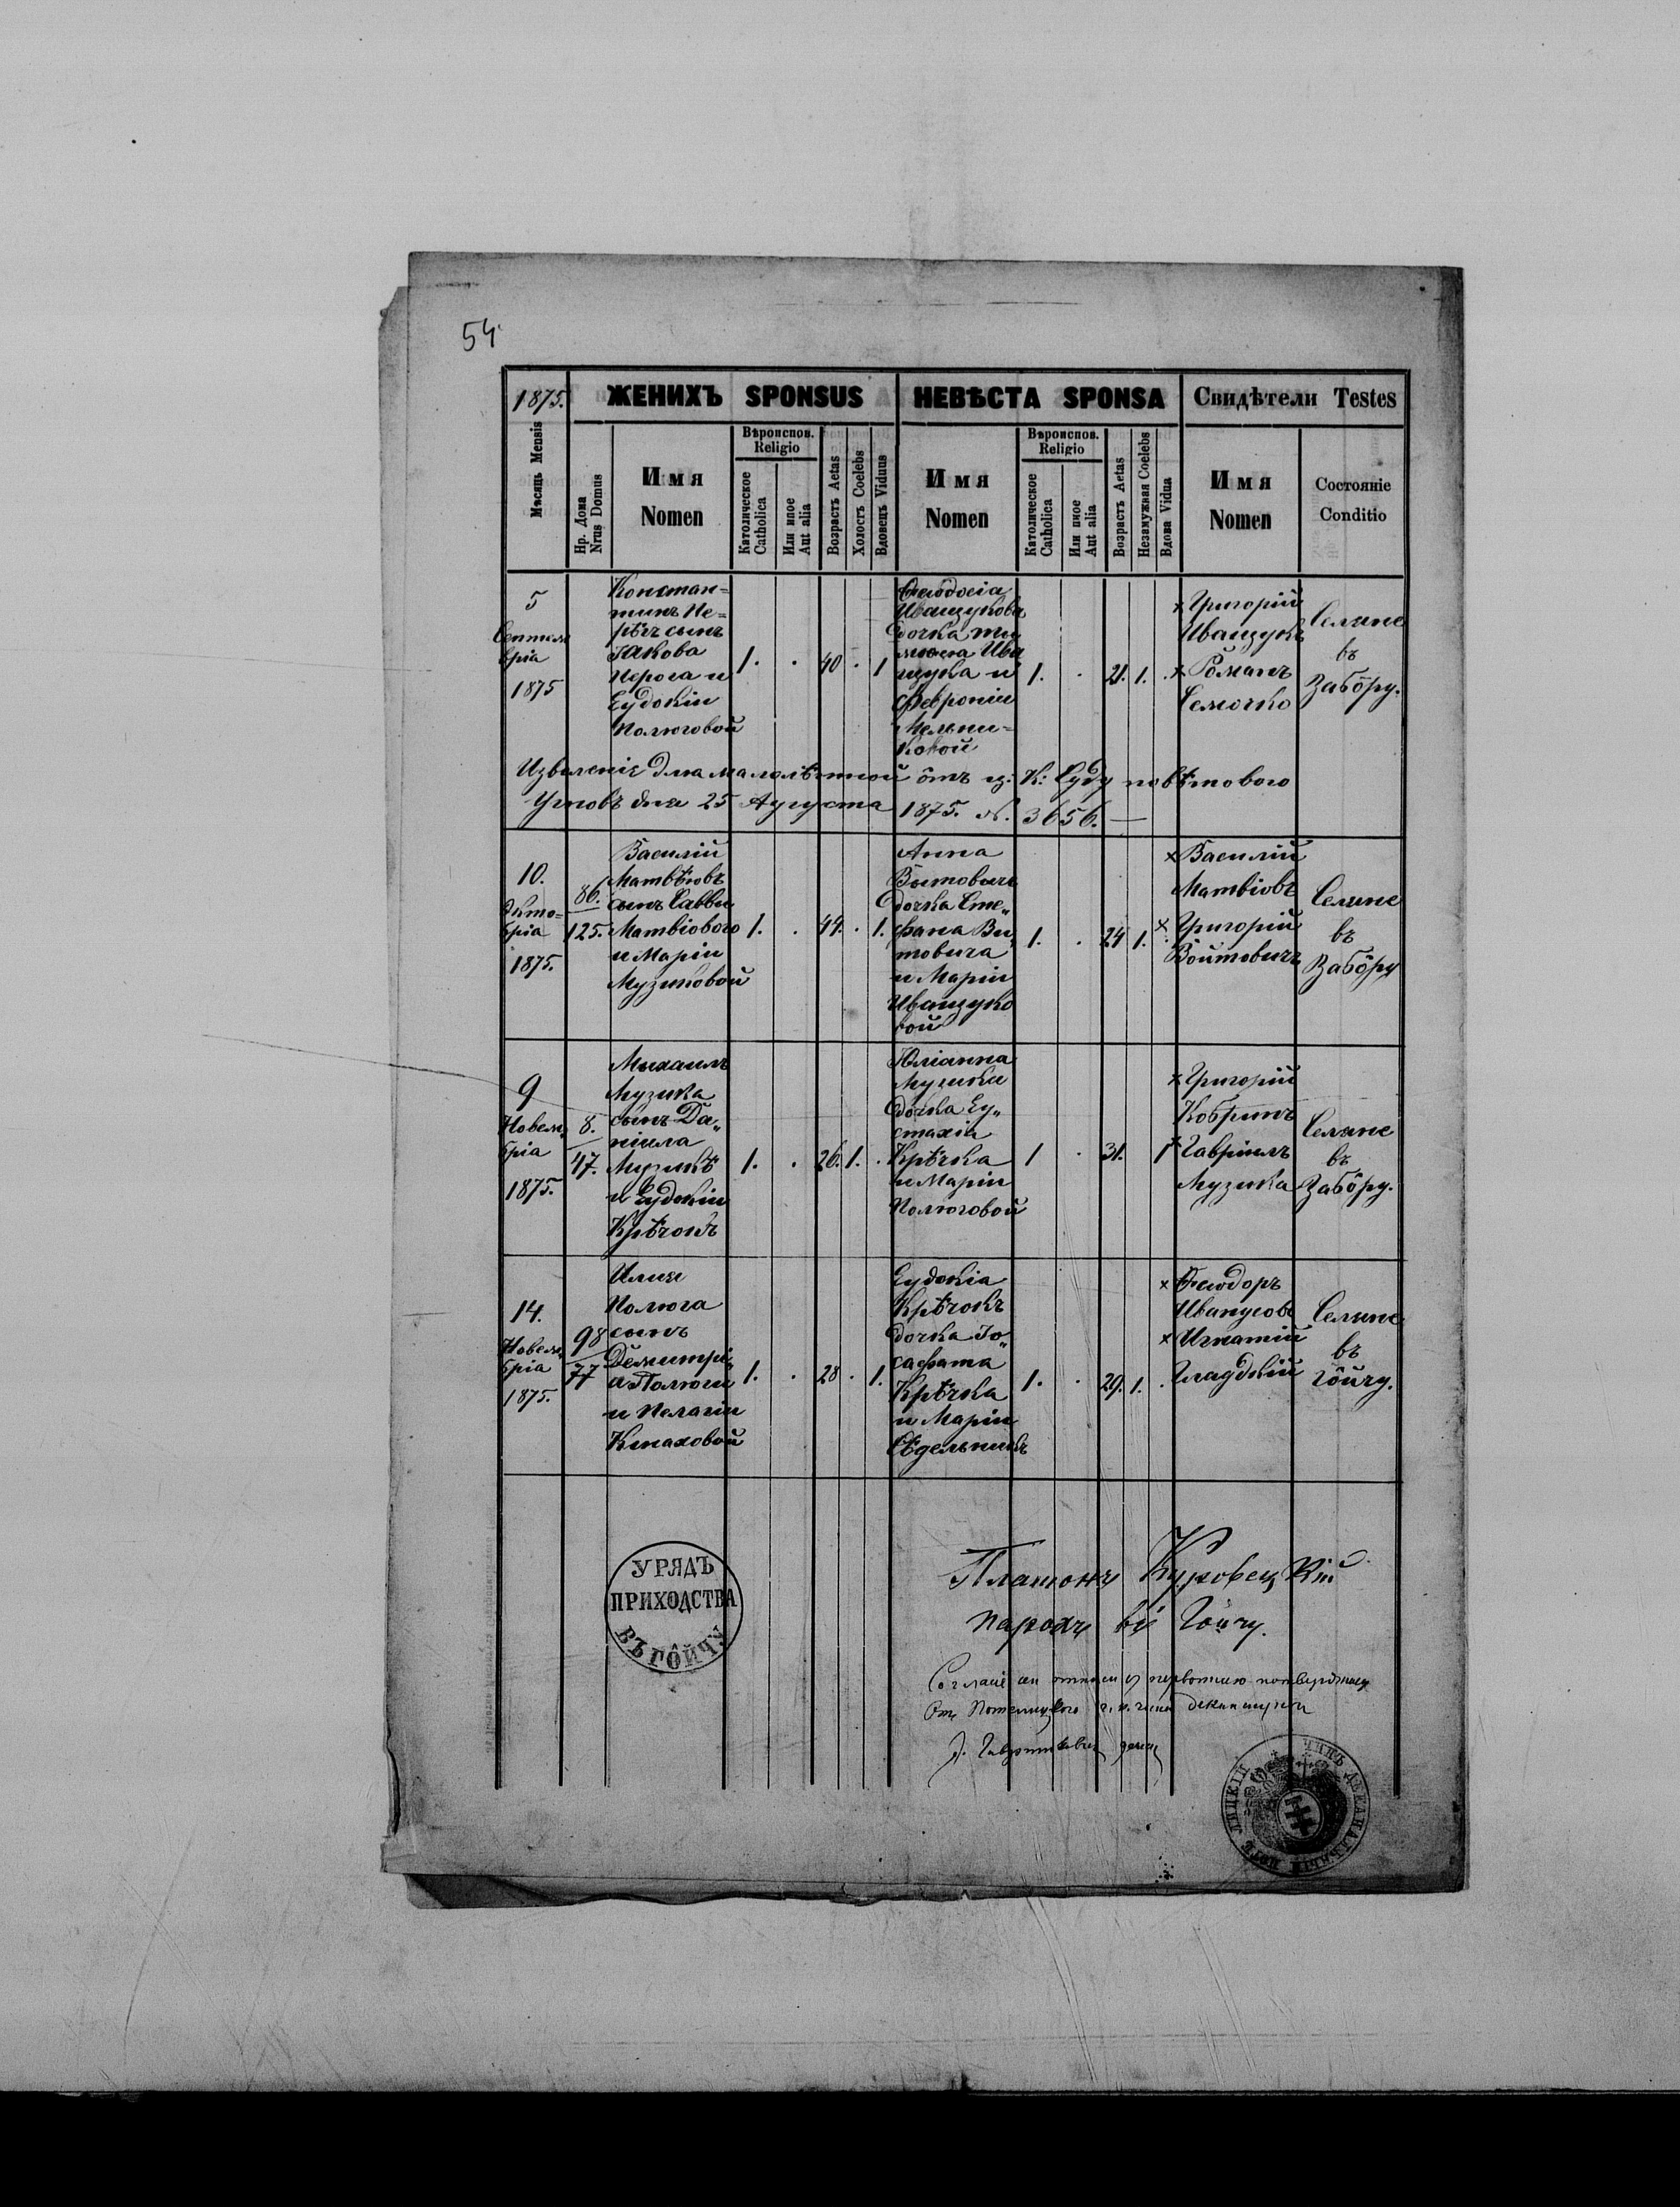 54
1875. ЖЕНИХЪ SPONSUS НЕВѢСТА SPONSA Свидѣтели Testes
Мѣсяць Mensis
Нр. Дома
Nrus Domus
Имя
Nomen
Вѣроиспов.
Religio
Католическое
Catholica
Или иное
Aut alia
Возрастъ Aetas
Холостъ Coelebs
Вдовець Viduus
Имя
Nomen
Вѣроиспов.
Religio
Католическое
Catholica
Или иное
Aut alia
Возрастъ Aetas
Незамужная Coelebs
Вдова Vidua
Имя
Nomen
Состояніе
Conditio
5
Септем
вріа
1875
Констан=
тинъ Пе=
рѣгъ сынъ
Іакова
Перога и
Еудокіи
Полюговой
1. . 40 . 1
Феодосіа
Иващукова
дочка Ти
моѳеа Ива
щука и
Февроніи
Мельни=
ковой
1. . 21. 1. .
x Григорій
Иващукъ
x Романъ
Семочко
Селяне
въ
Забôру.
Изволеніе для малолѣтной ôтъ ц: К: Суду повѣтового
Угновъ дня 25 Августа 1875. N. 3656. —
10.
Окто=
бріа
1875.
86.
125.
Василій
Матвѣовъ
сынъ Саввы
Матвіового
и Маріи
Музиковой
1. . 44. . 1.
Анна
Війтовичъ
дочка Сте„
фана Ви
товича
и Маріи
Иващуко
вой
1. . 24 1. .
x Василій
Матвіовъ
x Григорій
Войтовичъ
Селяне
въ
Забôру
9
Новем„
бріа
1875.
8.
47.
Михаилъ
Музика
сынъ Да„
ніила
Музикѣ
и Еудокіи
Крѣчокъ
1. . 26. 1. .
Юліанна
Мушки
дочка Еу„
стахіа
Крѣчка
и Маріи
Полюговой
1 . 31. 1
x Григорій
Кобринъ
x Гавріилъ
Музика
Селяне
въ
Забôру.
14.
Новем„
бріа
1875.
98
77
Илия
Полюга
сынъ
Димитрі„
а Полюги
и Пелагіи
Кмаховой
1. . 28 . 1.
Еудокіа
Крѣчокъ
дочка Іо„
сафата
Крѣчка
и Маріи
Сѣдельникъ
1. . 29. 1. .
x Феодоръ
Иванусовъ
x Игнатій
Гладкій
Селяне
въ
Гôйчу.
УРЯДЪ
ПРИХОДСТВА
ВЪ ГÔЙЧУ
Платонъ Куровецкій
парохъ въ Гойчу.